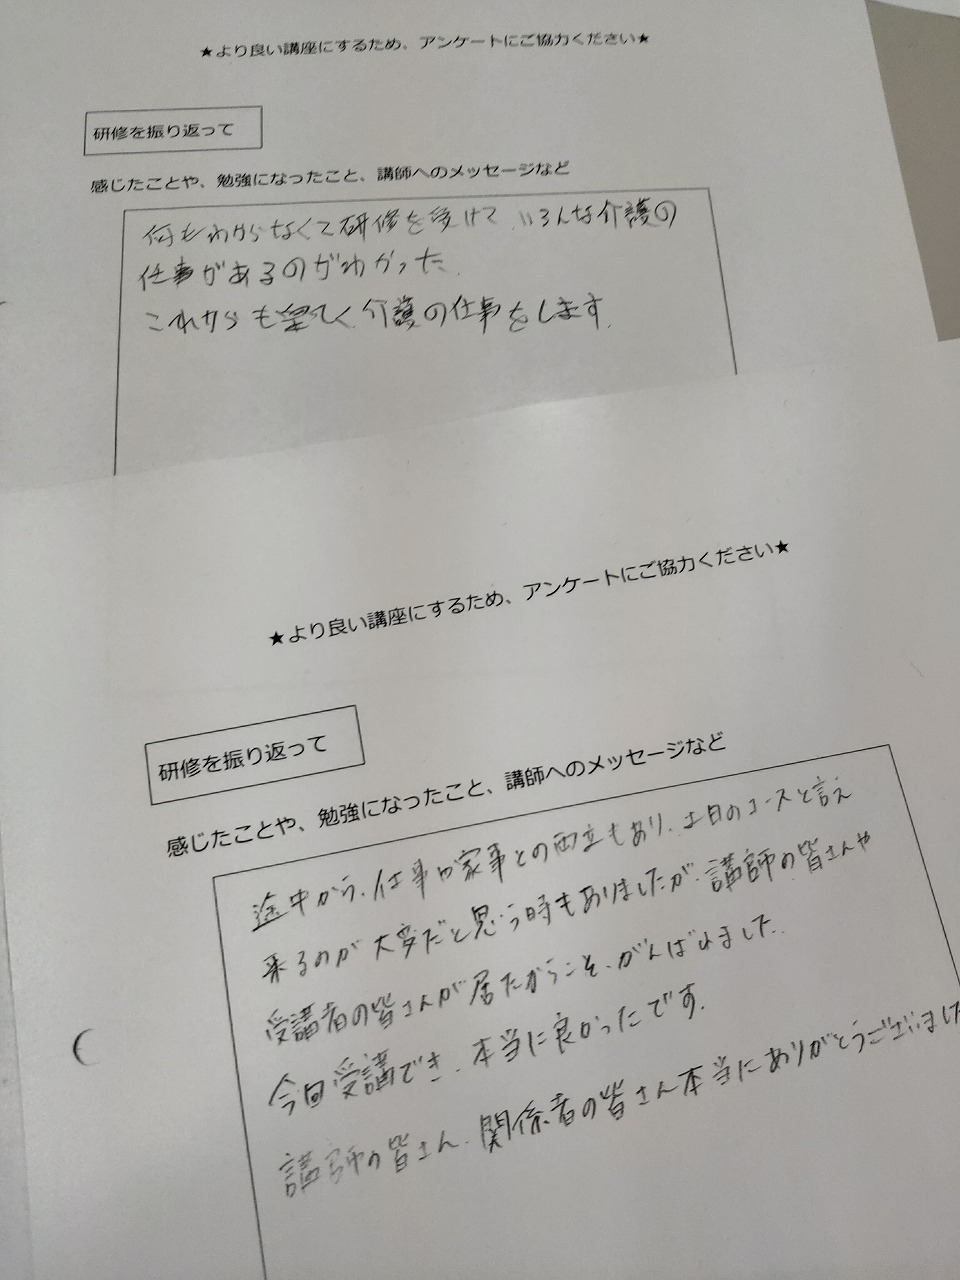 ★より良い講座にするため、アンケートにご協力ください★
研修を振り返って
感じたことや、勉強になったこと、講師へのメッセージなど
何もわからなくて研修を受けて、いろんな介護の
仕事があるのがわかった。
これからも 介護の仕事をします。
★より良い講座にするため、アンケートにご協力ください★
研修を振り返って
感じたことや、勉強になったこと、講師へのメッセージなど
途中から、仕事や家事との両立もあり、土日のコースと言え
来るのが大変だと思う時もありましたが、講師の皆さんや
受講者の皆さんが居たからこそ、がんばれました。
今回受講でき、本当に良かったです。
講師の皆さん、関係者の皆さん本当にありがとうございました